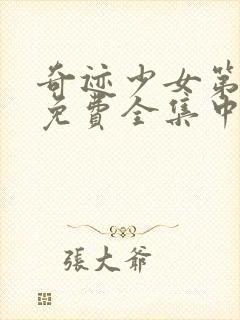 奇迹少女第
免費全集中
張大爺